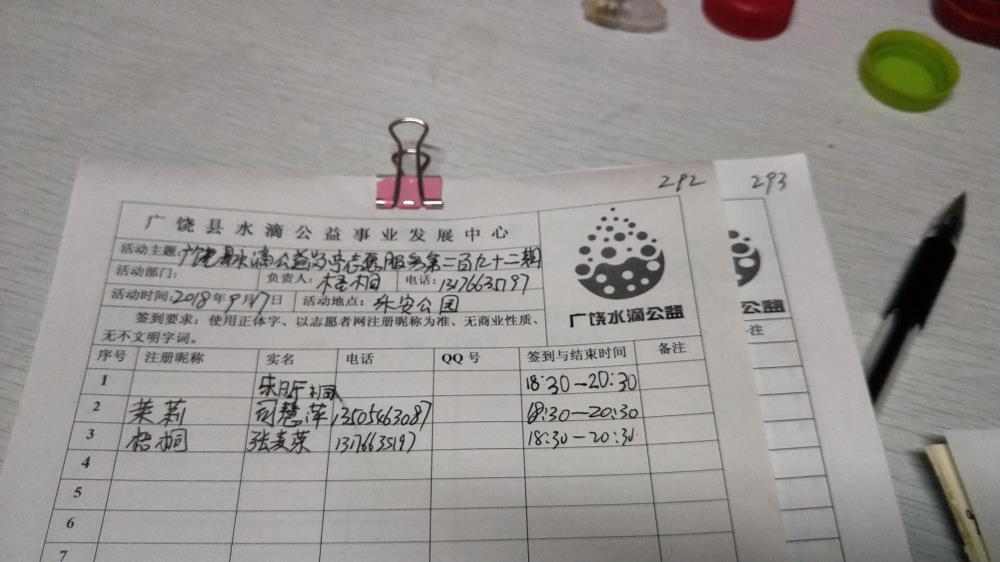 292 293
广饶县水滴公益事业发展中心
活动主题:广饶县水滴公益 志愿服务第二百九十二期
活动部门: 负责人:梧桐 电话:13176635197
活动时间:2018年9月17日 活动地点:乐安公园
签到要求:使用正体字、以志愿者网注册昵称为准、无商业性质、
无不文明字词。
广饶水滴公益
序号 注册昵称 实名 电话 QQ号 签到与结束时间 备注
1 18:30—20:30
2 茉莉 慧萍 13505463087 18:30—20:30
3 梧桐 张麦荣 13176635197 18:30—20:30
4
5
6
7